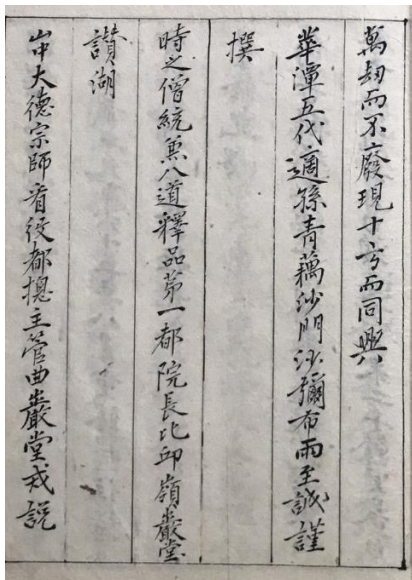 萬劫而不廢現十方而同興
華潭五代適孫青藕沙門沙彌布雨至誠謹
撰
時之僧統兼八道釋品第一都院長比邱嶺巖堂
讃湖
山中大德宗師省役都摠主管曲巖堂戒説